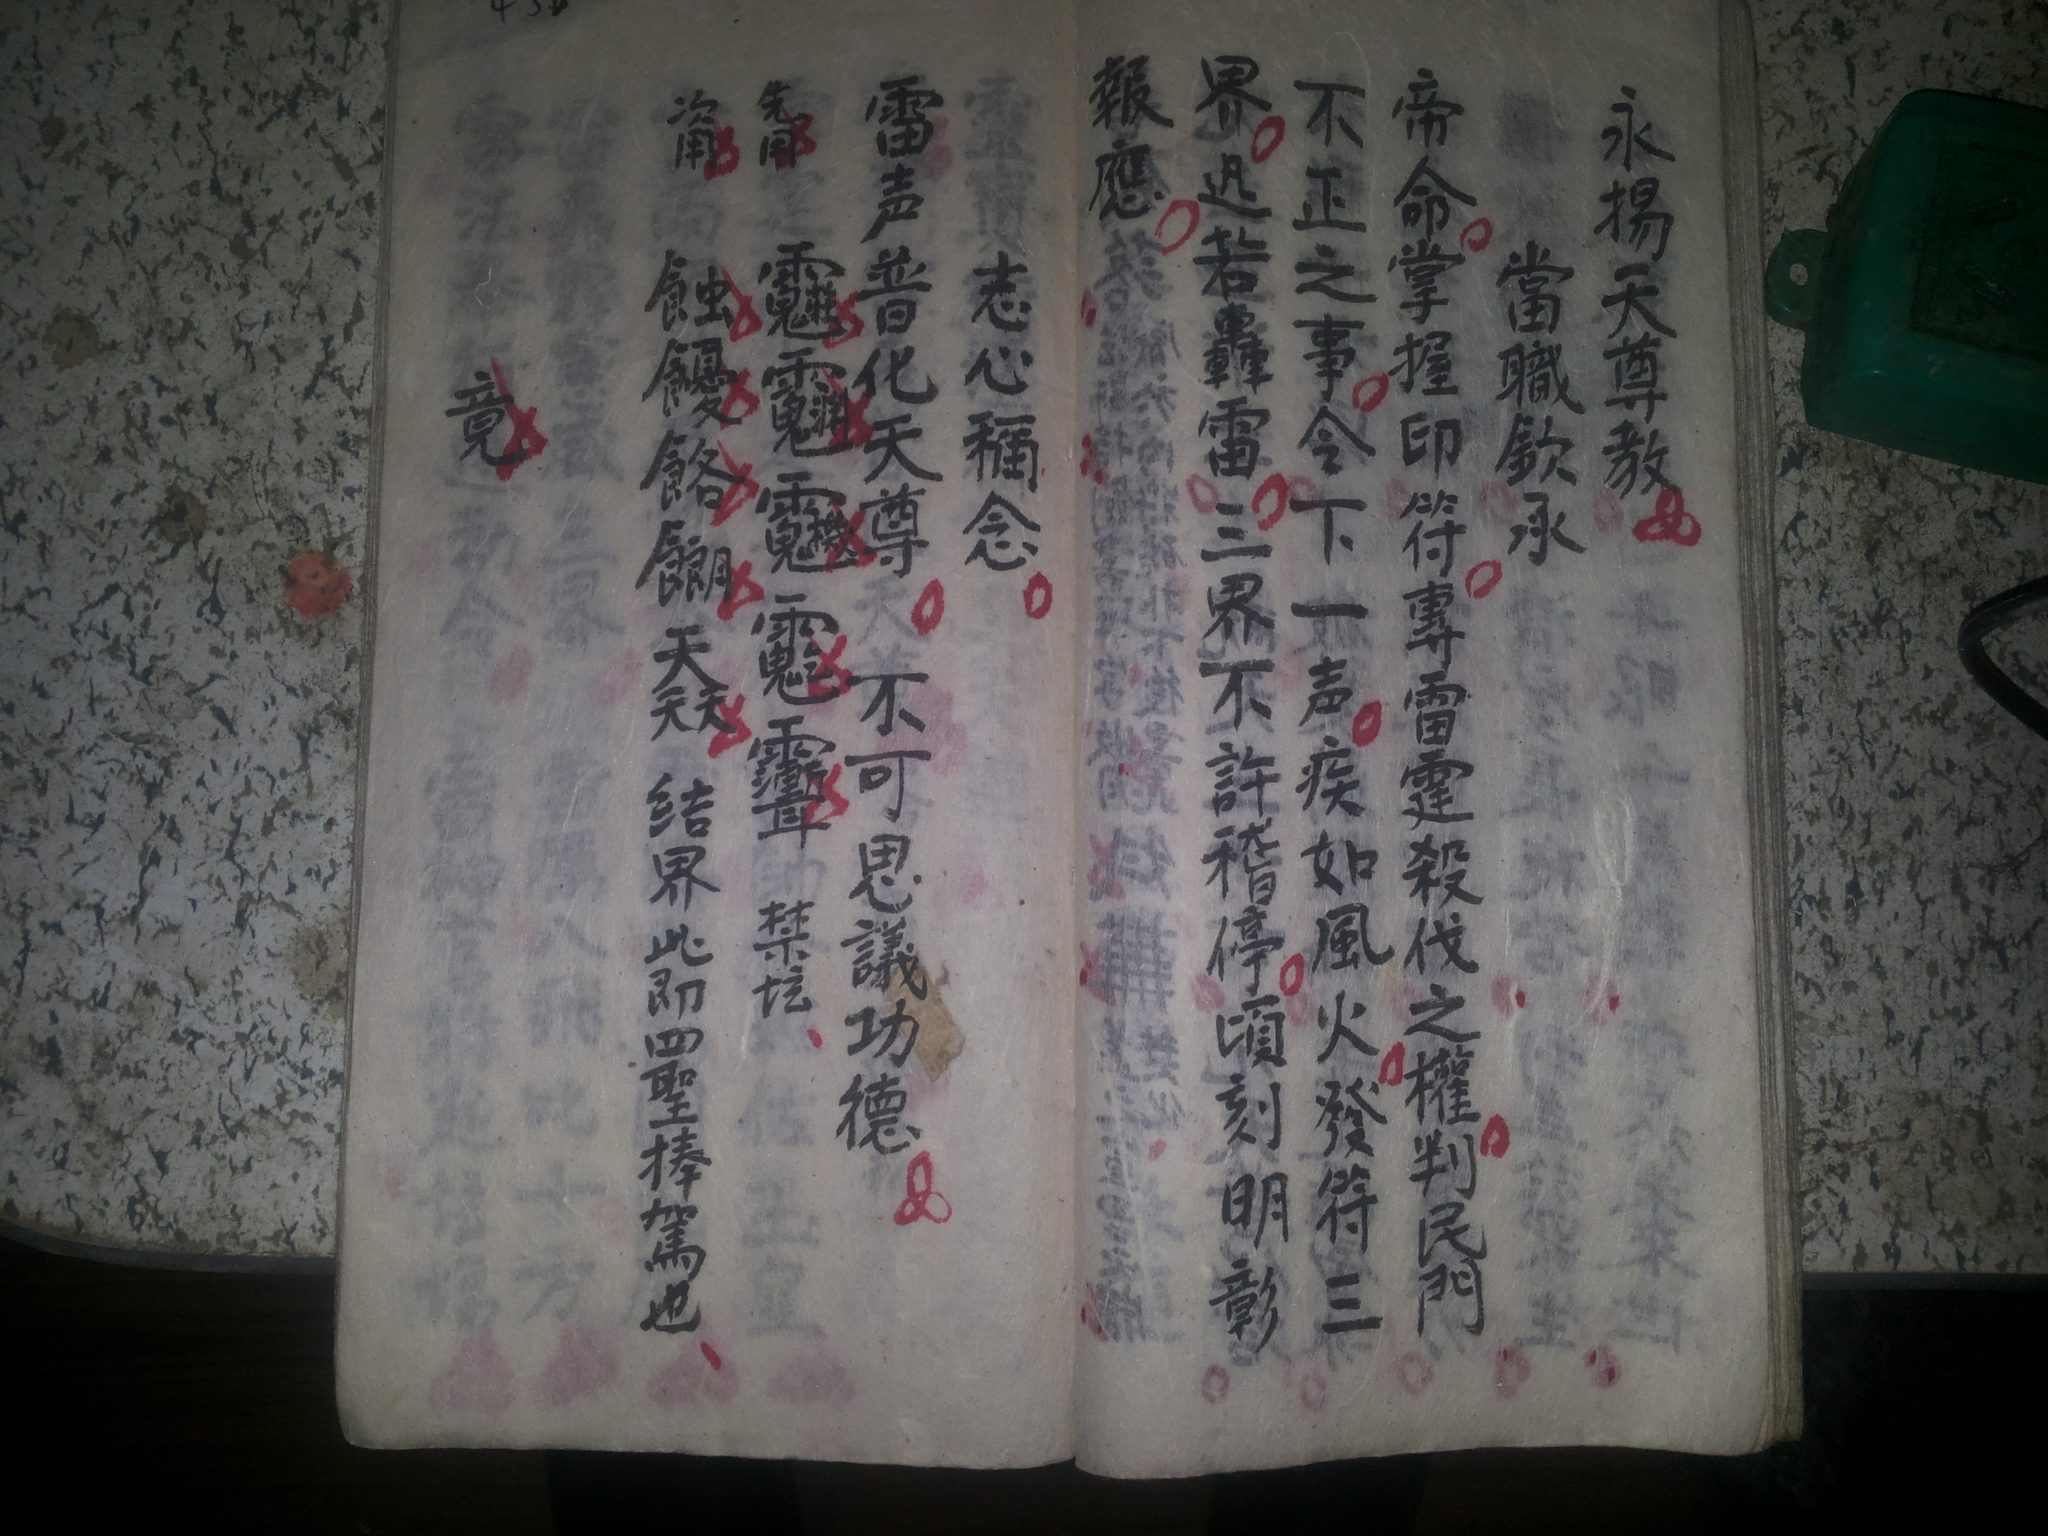 永揚天尊教
當職欽承
帝命掌握印符專雷霆殺伐之權判民門
不正之事令下一声疾如風火發符三
界迅若轟雷三界不許稽停頃刻明彰
報應
志心稱念
雷声普化天尊 不可思議功德
先用 禁坛
次用 蝕 餎 結界此即四聖捧駕也
竟